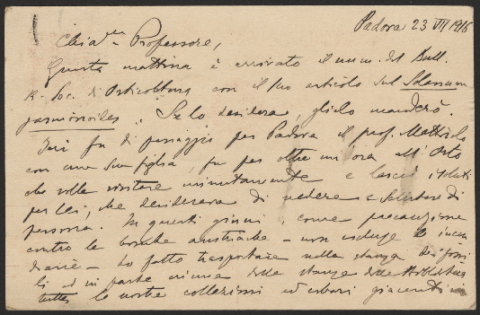 Padova 23 VII 1916
Chia.mo Professore,
Questa mattina è arrivato il num. del Bull.
R. Soc. d'Orticoltura con il Suo articolo sul Solanum
jasminoides. Se lo desidera, glielo manderò.
Ieri fu di passaggio per Padova il prof. Mattirolo
con una sua figlia, fu per oltre un'ora all'Orto
che volle visitare minutamente e lasciò i saluti
per Lei, che desiderava di vedere e salutare di
persona. In questi giorni, come precauzione
contro le bombe austriache - non escluse le incen
diarie - ho fatto trasportare nella stanza dei fossi
li ed in parte
tutte le nostre collezioni ed erbari giacenti